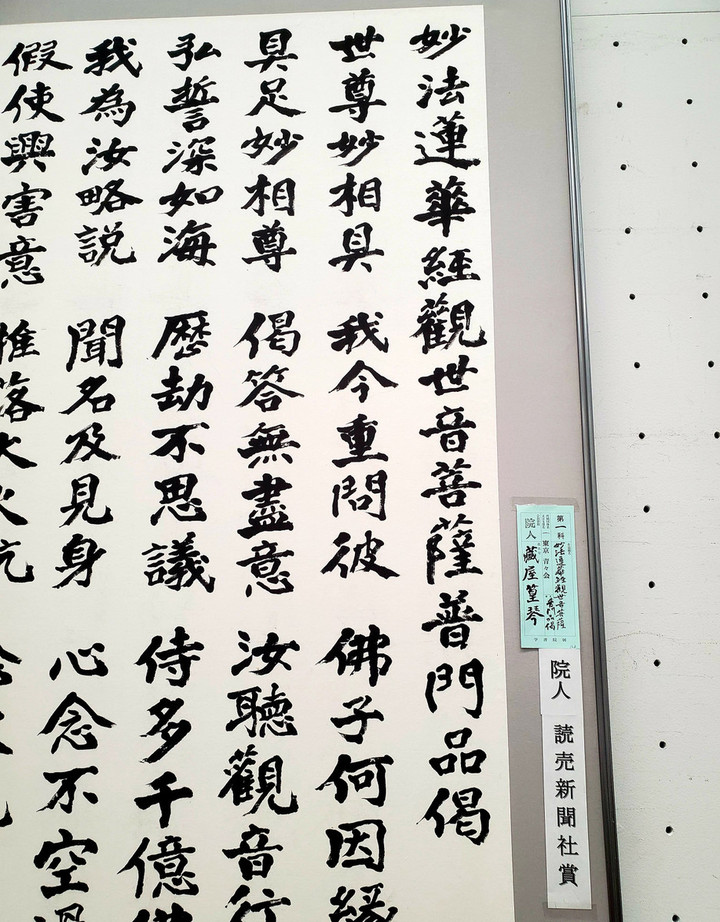 妙法蓮華經觀世音菩薩普門品偈
世尊妙相具 我今重問彼 佛子何因緣
具足妙相尊 偈答無盡意 汝聽觀音行
弘誓深如海 歷劫不思議 侍多千億佛
我為汝略説 聞名及見身 心念不空過
假使興害意 推落大火坑 念
第一科 妙法蓮華経観世音菩薩普門品偈
東京 青々会
院人 蔵屋篁琴
院人
読売新聞社賞